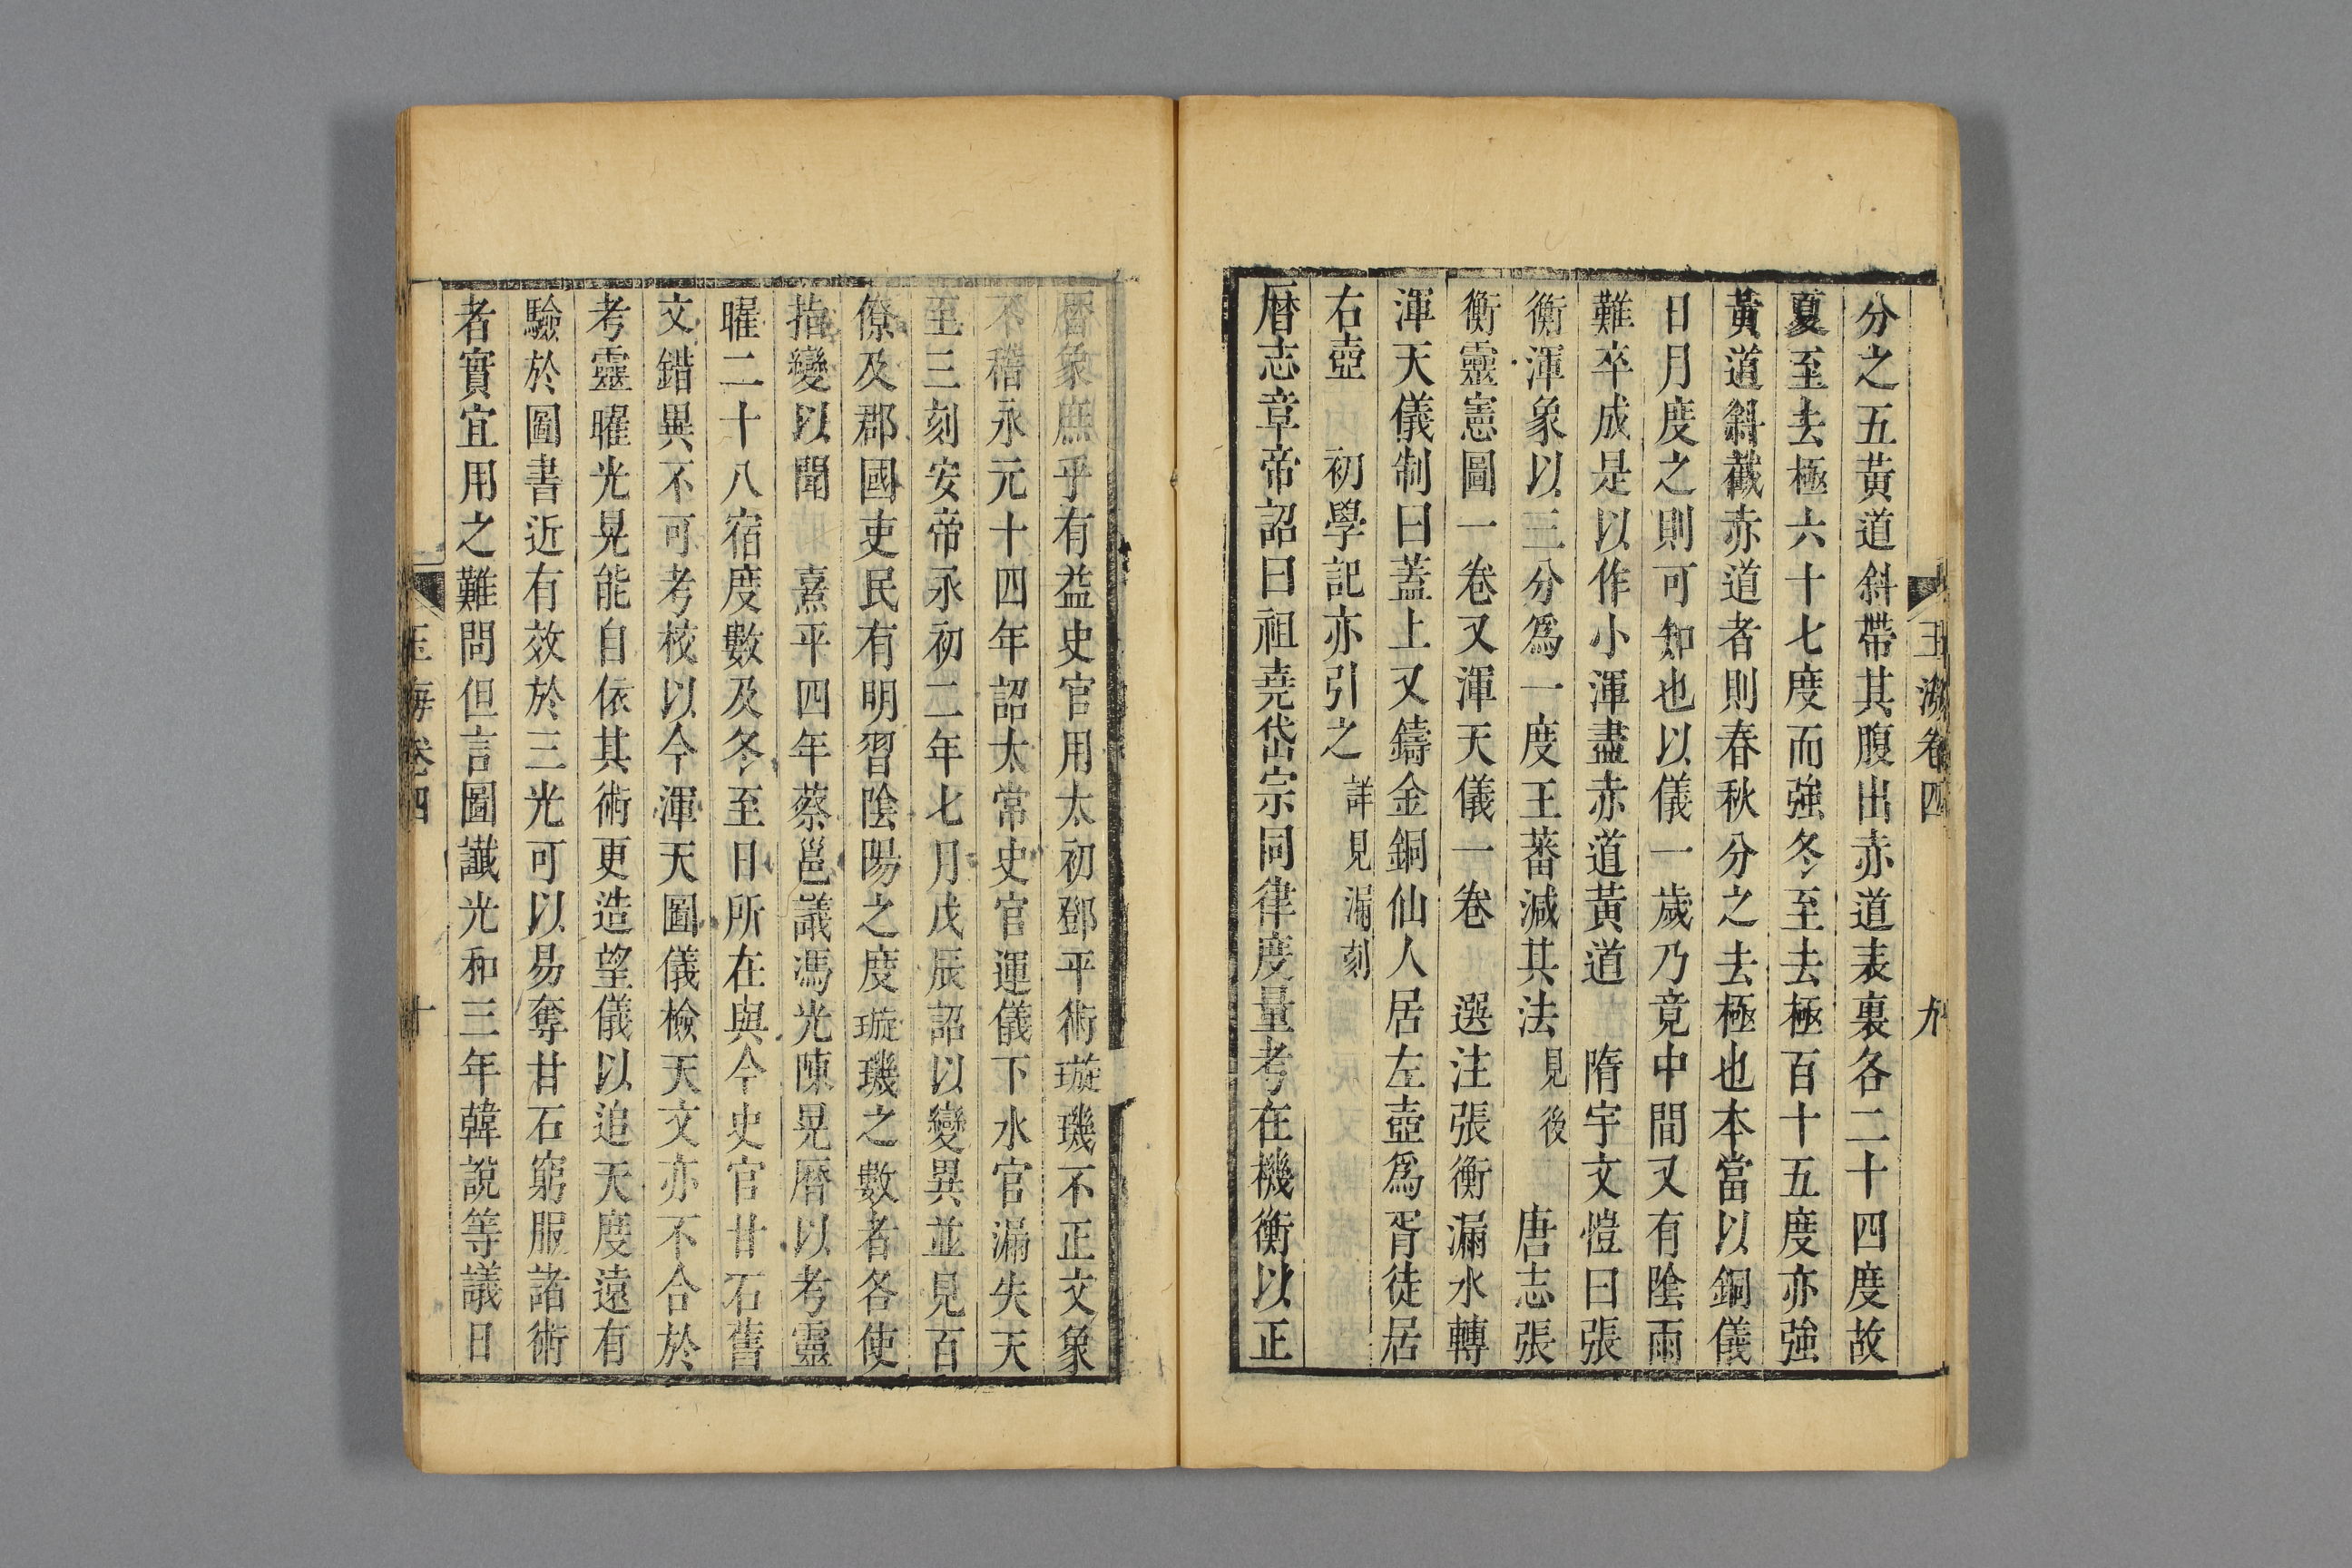 玉海卷四 九
分之五黃道斜帶其腹出赤道表裏各二十四度故
夏至去極六十七度而強冬至去極百十五度亦強
黃道斜截赤道者則春秋分之去極也本當以銅儀
日月度之則可知也以儀一歲乃竟中間又有陰雨
難卒成是以作小渾盡赤道黃道 隋宇文愷曰張
衡渾象以三分爲一度王蕃減其法見後 唐志張
衡靈憲圖一卷又渾天儀一卷 選注張衡漏水轉
渾天儀制曰蓋上又鑄金銅仙人居左壺爲胥徒居
右壺 初學記亦引之詳見漏刻
曆志章帝詔曰祖堯岱宗同律度量考在機衡以正
曆象庶乎有益史官用太初鄧平術璇璣不正文象
不稽永元十四年詔太常史官運儀下水官漏失天
至三刻安帝永初二年七月戊辰詔以變異並見百
僚及郡國吏民有明習陰陽之度璇璣之數者各使
指變以聞 熹平四年蔡邕議馮光陳晃曆以考靈
曜二十八宿度數及冬至日所在與今史官甘石舊
文錯異不可考校以今渾天圖儀檢天文亦不合於
考靈曜光晃能自依其術更造望儀以追天度遠有
驗於圖書近有效於三光可以易奪甘石窮服諸術
者實宜用之難問但言圖讖光和三年韓說等議日
玉海卷四 十